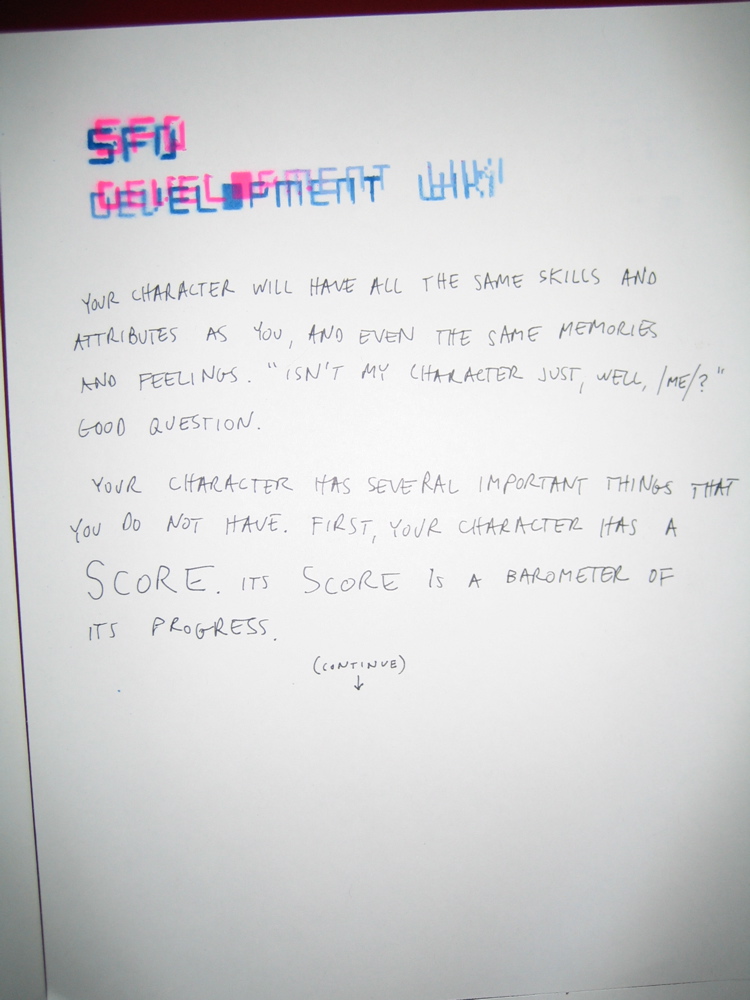 SF0
DEVELOPMENT WIKI
YOUR CHARACTER WILL HAVE ALL THE SAME SKILLS AND
ATTRIBUTES AS YOU, AND EVEN THE SAME MEMORIES
AND FEELINGS. "ISN'T MY CHARACTER JUST, WELL, /ME/?"
GOOD QUESTION.
YOUR CHARACTER HAS SEVERAL IMPORTANT THINGS THAT
YOU DO NOT HAVE. FIRST, YOUR CHARACTER HAS A
SCORE. ITS SCORE IS A BAROMETER OF
ITS PROGRESS.
(CONTINUE)
↓